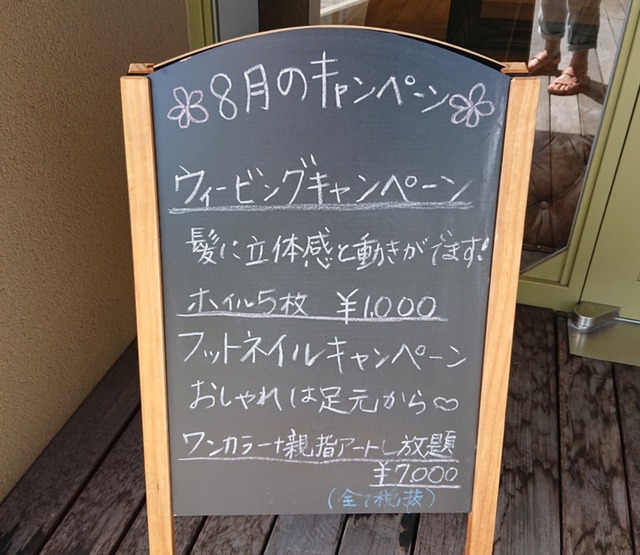 8月のキャンペーン
ウィービングキャンペーン
髪に立体感と動きがでます!
ホイル5枚 ¥1,000
フットネイルキャンペーン
おしゃれは足元から♡
ワンカラー+親指アートし放題
¥7,000
(全て税抜)